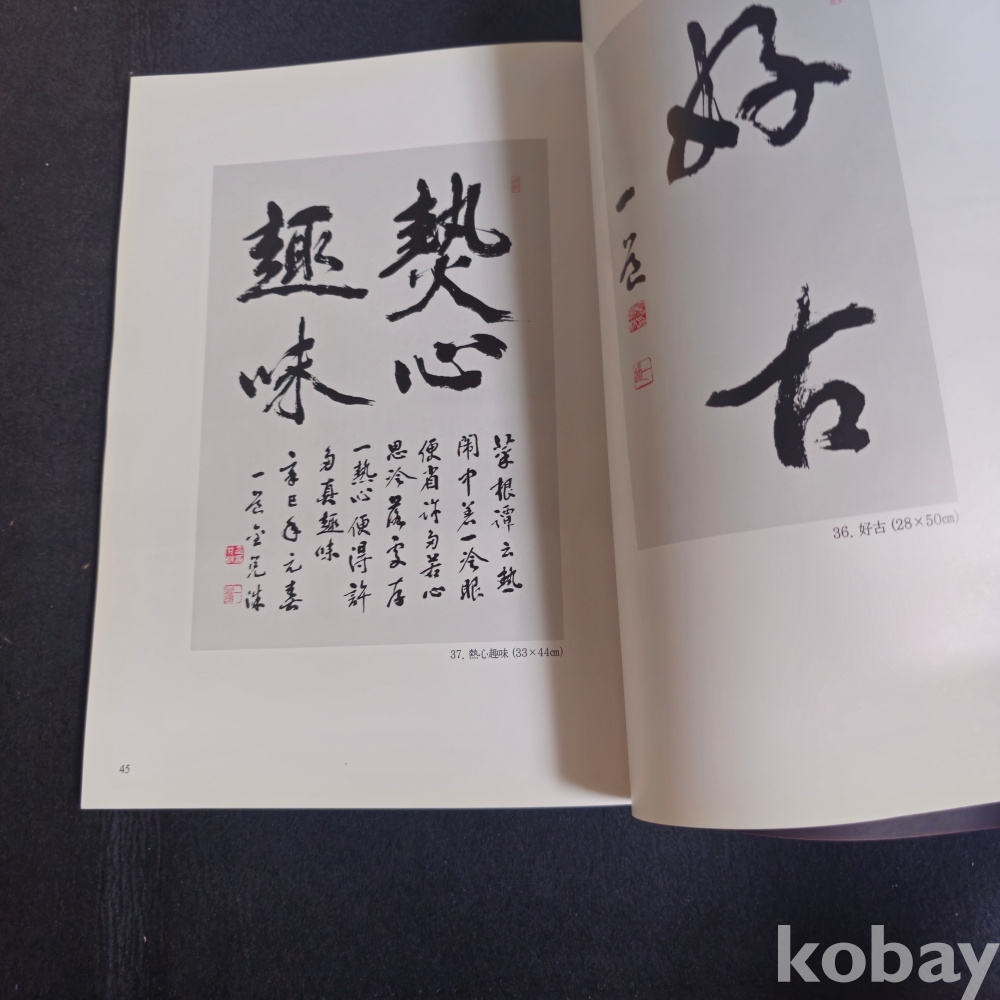 好古
36. 好古 (28×50㎝)
熱心
趣味
菜根譚云熱
閙中著一冷眼
便省許多苦心
思冷落處存
一熱心便得許
多真趣味
辛巳年元春
37. 熱心趣味 (33×44㎝)
45
kobay